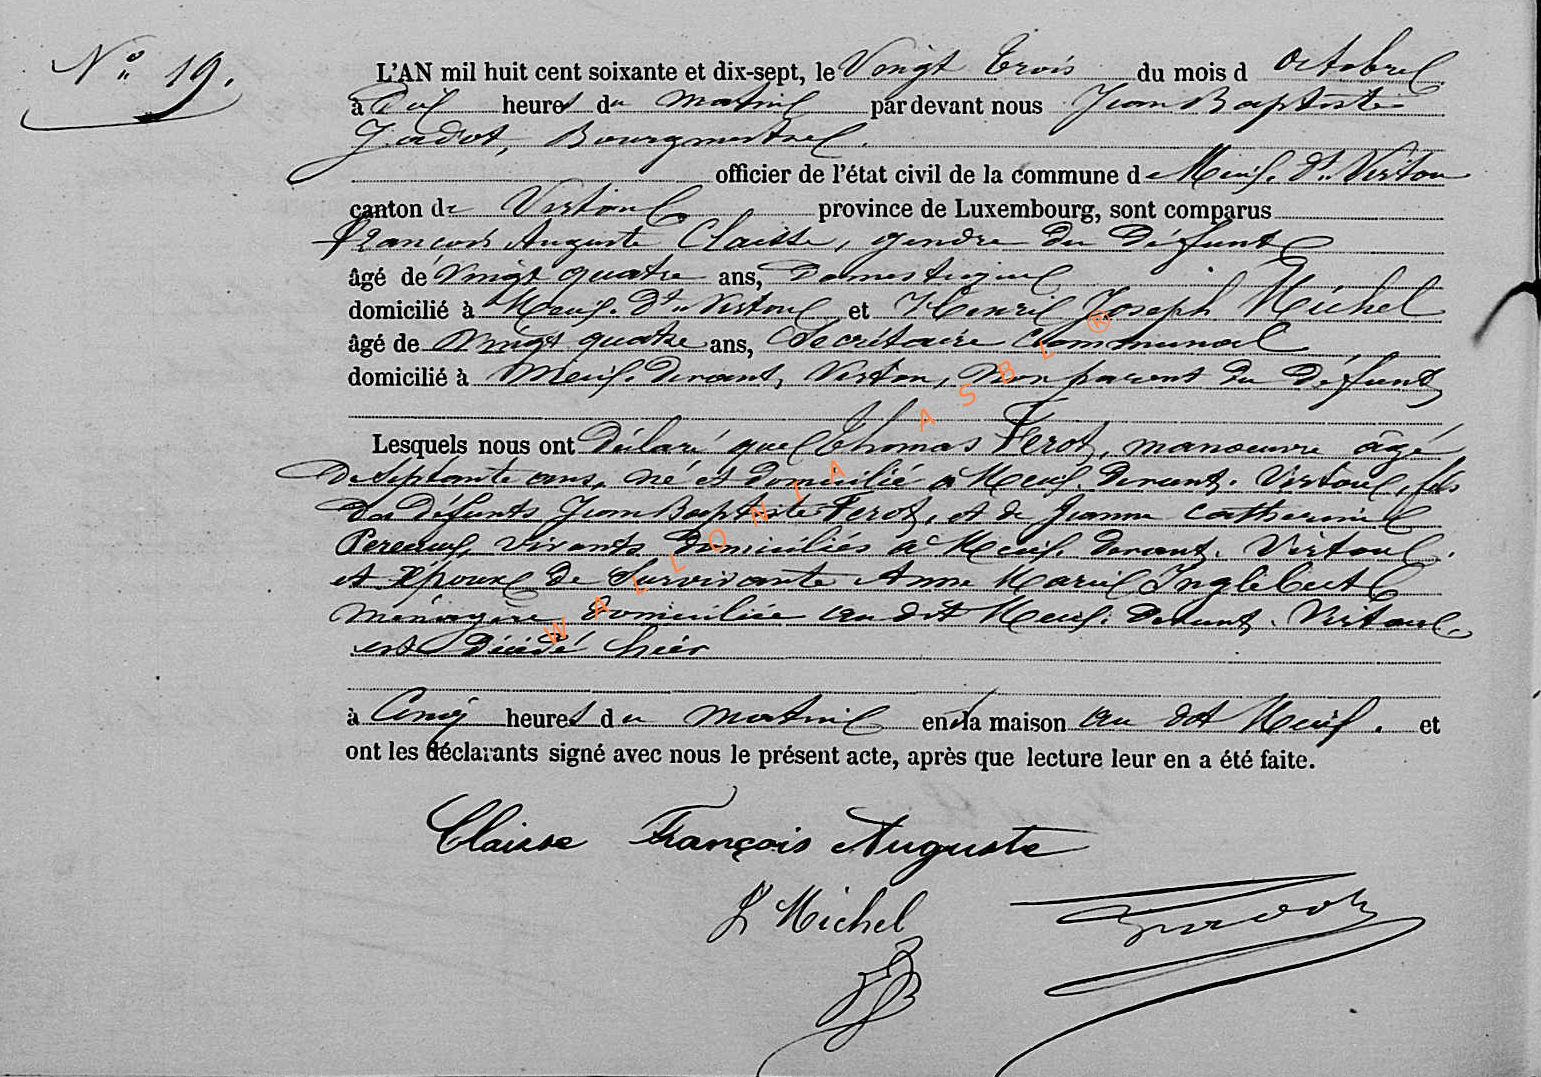 N° 19.
L'AN mil huit cent soixante et dix-sept, le Vingt trois du mois d octobre
à dix heures du matin par devant nous Jean Baptiste
Jadot, Bourgmestre.
officier de l'état civil de la commune de Meix. dt. Virton
canton de Virton province de Luxembourg, sont comparus
François Auguste Claisse, gendre du défunt
âgé de vingt quatre ans, Domestique
domicilié à Meix. dt. Virton et Henri Joseph Michel
âgé de vingt quatre ans, Secrétaire Communal
domicilié à Meix. devant, Virton, non parent du défunt
Lesquels nous ont déclaré que Thomas Ferot, manoeuvre âgé
de septante ans, né et domicilié à Meix. devant. Virton, fils
des défunts Jean Baptiste Ferot, et de Jeanne Catherine
vivants domiciliés à Meix. devant. Virton.
et époux de survivante Anne Marie Inglebert
ménagère domiciliée au dit Meix. devant. Virton.
est décédé hier
à Cinq heures du matin en sa maison au dit Meix. et
ont les déclarants signé avec nous le présent acte, après que lecture leur en a été faite.
Claisse François Auguste
H Michel Jadot
WALLONIA ASBL ®